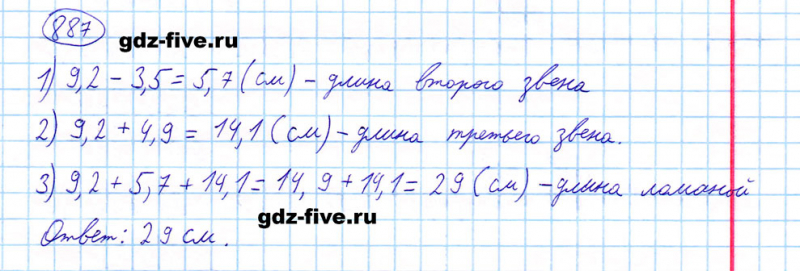 887
gdz-five.ru
1) 9,2 - 3,5 = 5,7 (см) - длина второго звена
2) 9,2 + 4,9 = 14,1 (см) - длина третьего звена.
3) 9,2 + 5,7 + 14,1 = 14,9 + 14,1 = 29 (см) - длина ломаной
gdz-five.ru
Ответ: 29 см.